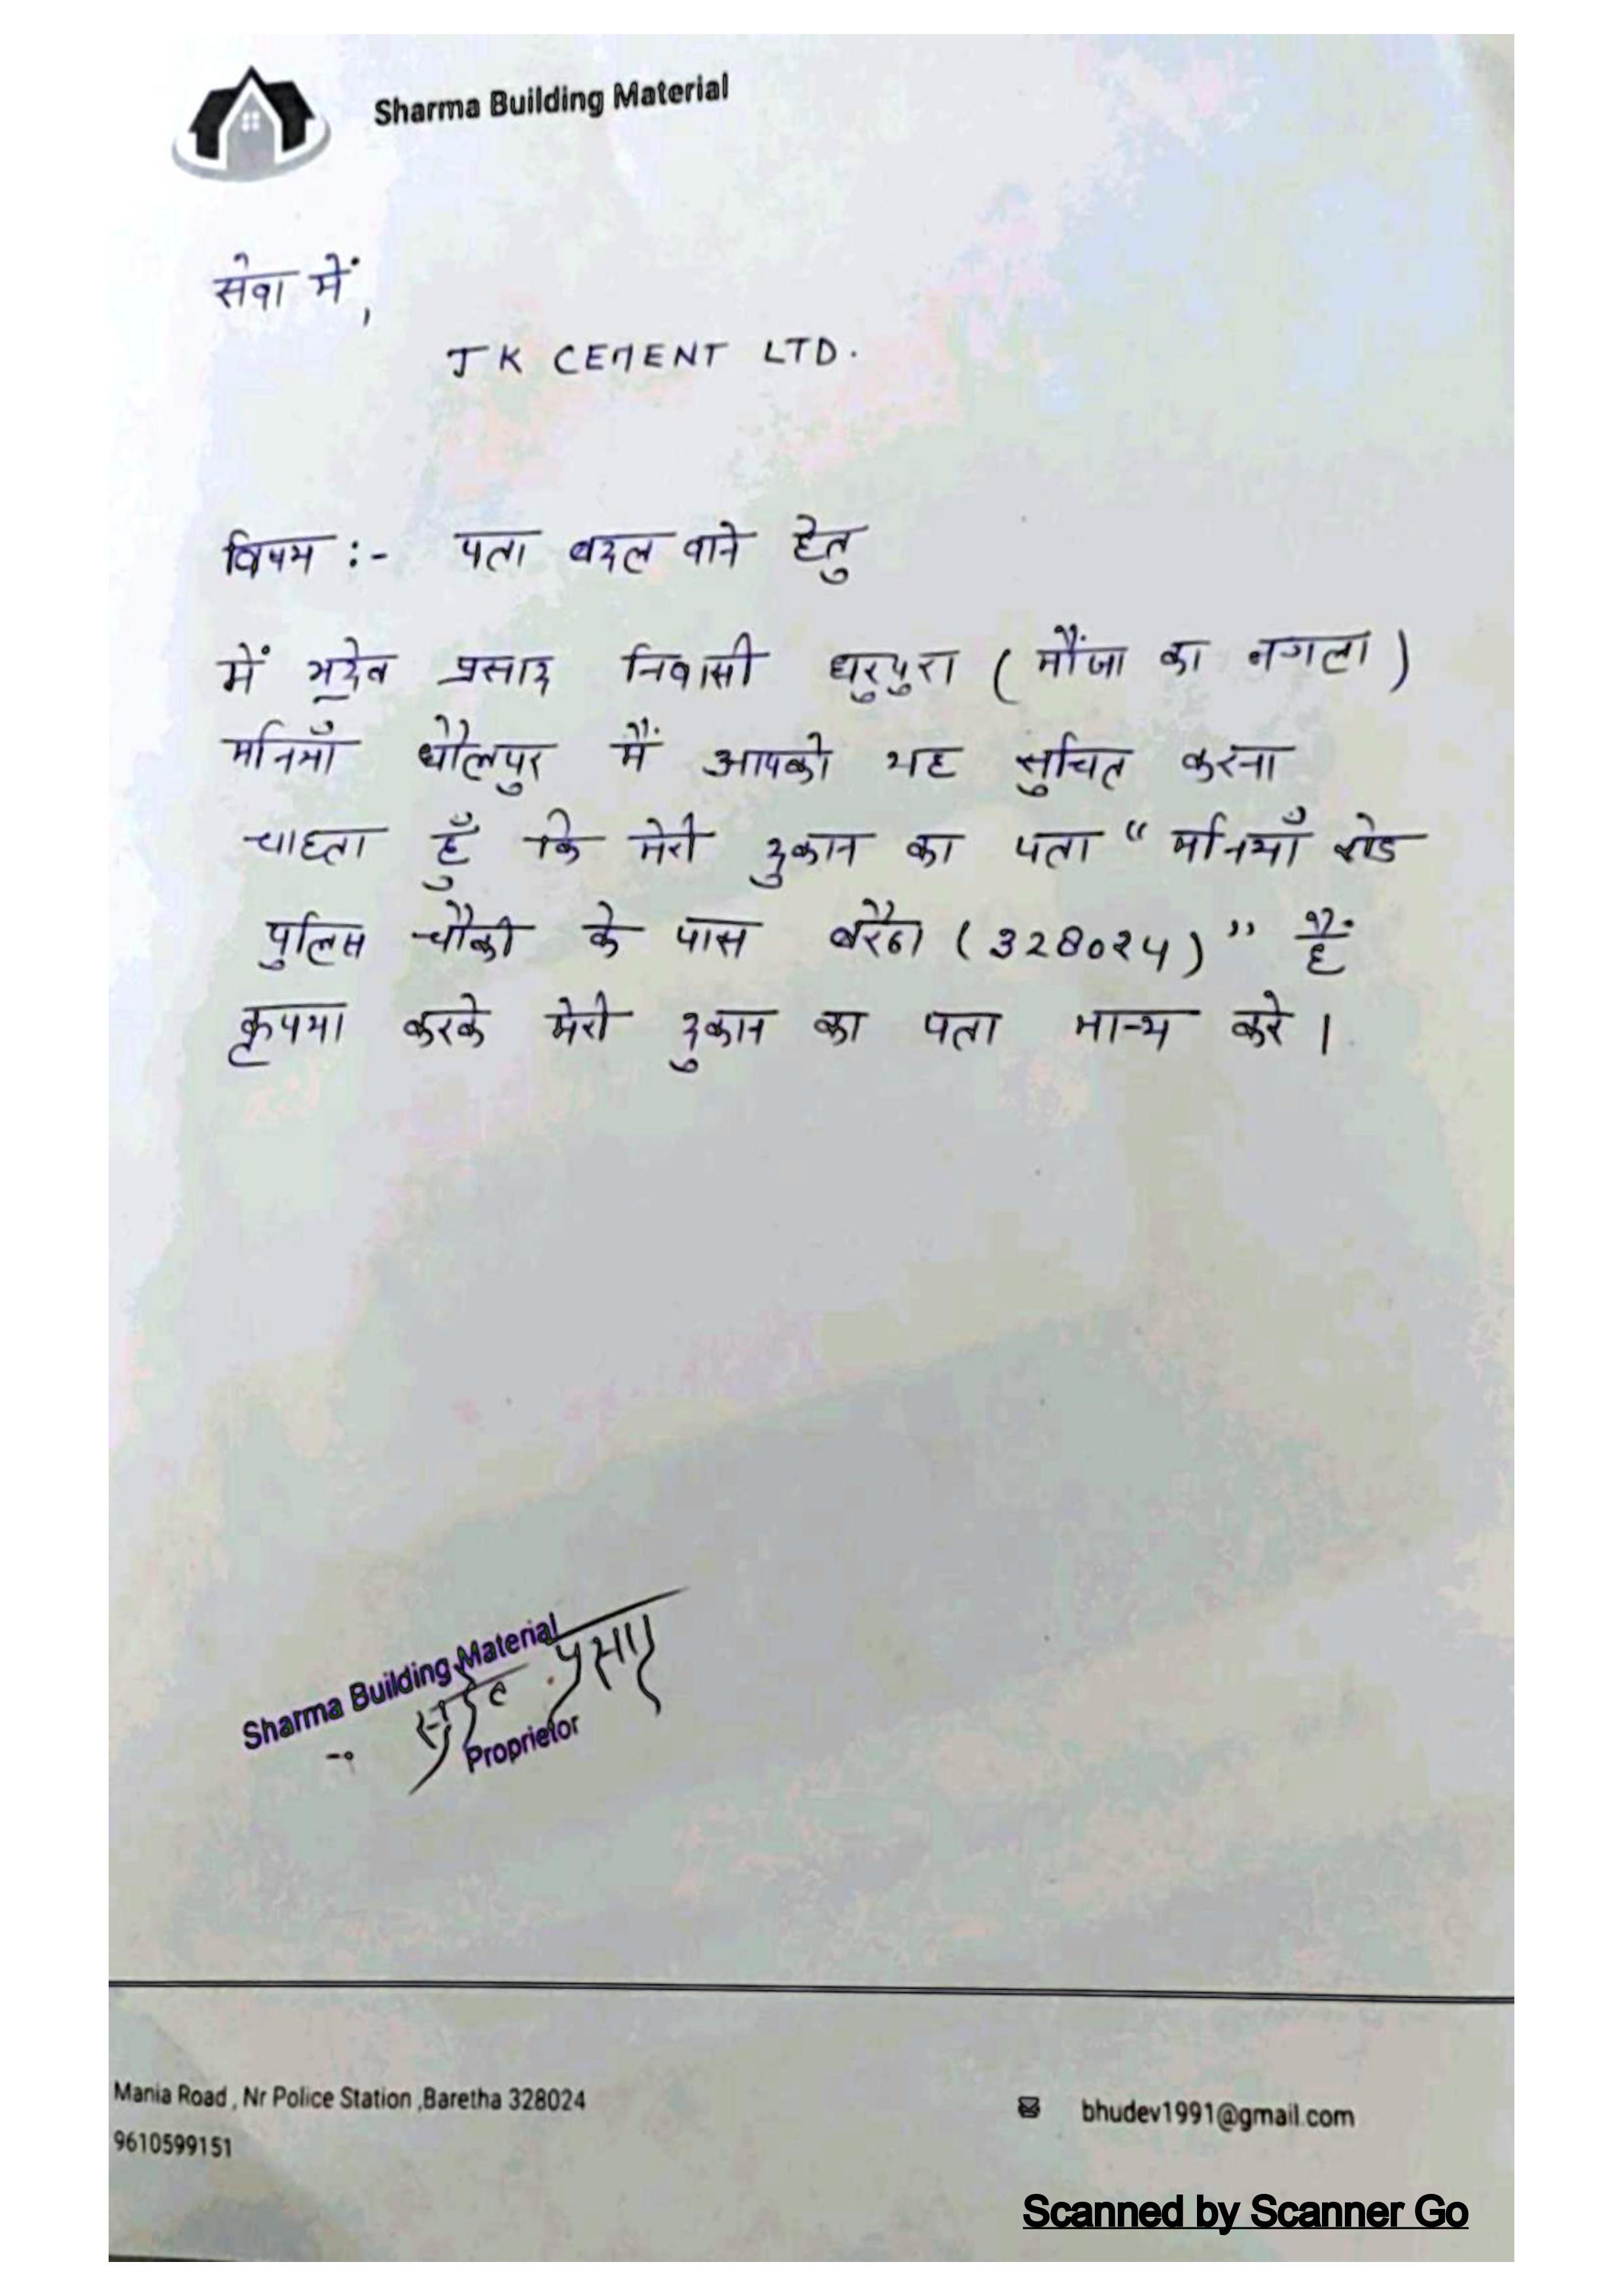 Sharma Building Material
सेवा में,
J K CEMENT LTD.
विषय :- पता बदल वाने हेतु
में भूदेव प्रसाद निवासी धुरुपुरा ( मौंजा का नगला )
मनियाँ धौलपुर मैं आपको यह सुचित करना
चाहता हूँ कि मेरी दुकान का पता “ मनियाँ रोड
पुलिस चौकी के पास बरैठा ( 328024 ) ” हैं
कृपया करके मेरी दुकान का पता मान्य करे ।
Sharma Building Material
भूदेव प्रसाद
Proprietor
Mania Road , Nr Police Station ,Baretha 328024
bhudev1991@gmail.com
9610599151
Scanned by Scanner Go